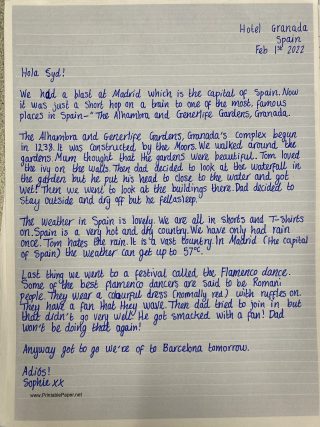 Hotel Granada
Spain
Feb 1st 2022
Hola Syd!
We had a blast at Madrid which is the capital of Spain. Now
it was just a short hop on a train to one of the most famous
places in Spain-"The Alhambra and Generlife Gardens, Granada.
The Alhambra and Generlife Gardens, Granada's complex begun
in 1238. It was constructed by the Moors. We walked around the
gardens. Mum thought that the gardens were beautiful. Tom loved
the ivy on the walls. Then dad decided to look at the waterfall in
the garden but he put his head to close to the water and got
wet! Then we went to look at the buildings there. Dad decided to
stay outside and dry off but he fell asleep.
The weather in Spain is lovely. We are all in shorts and T-Shirts
on. Spain is a very hot and dry country. We have only had rain
once. Tom hates the rain. It is a vast country. In Madrid (the capital
of Spain) the weather can get up to 57°C.
Last thing we went to a festival called the Flamenco dance.
Some of the best flamenco dancers are said to be Romani
people. They wear a colourful dress (normally red) with ruffles on.
They have a fan that they wave. Then dad tried to join in but
that didn't go very well. He got smacked with a fan! Dad
won't be doing that again!
Anyway got to go we're of to Barcelona tomorrow.
Adiós!
Sophie xx
www.PrintablePaper.net